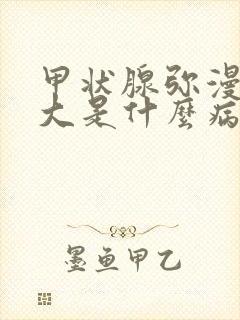 甲状腺弥漫
大是什麼病
墨鱼甲乙